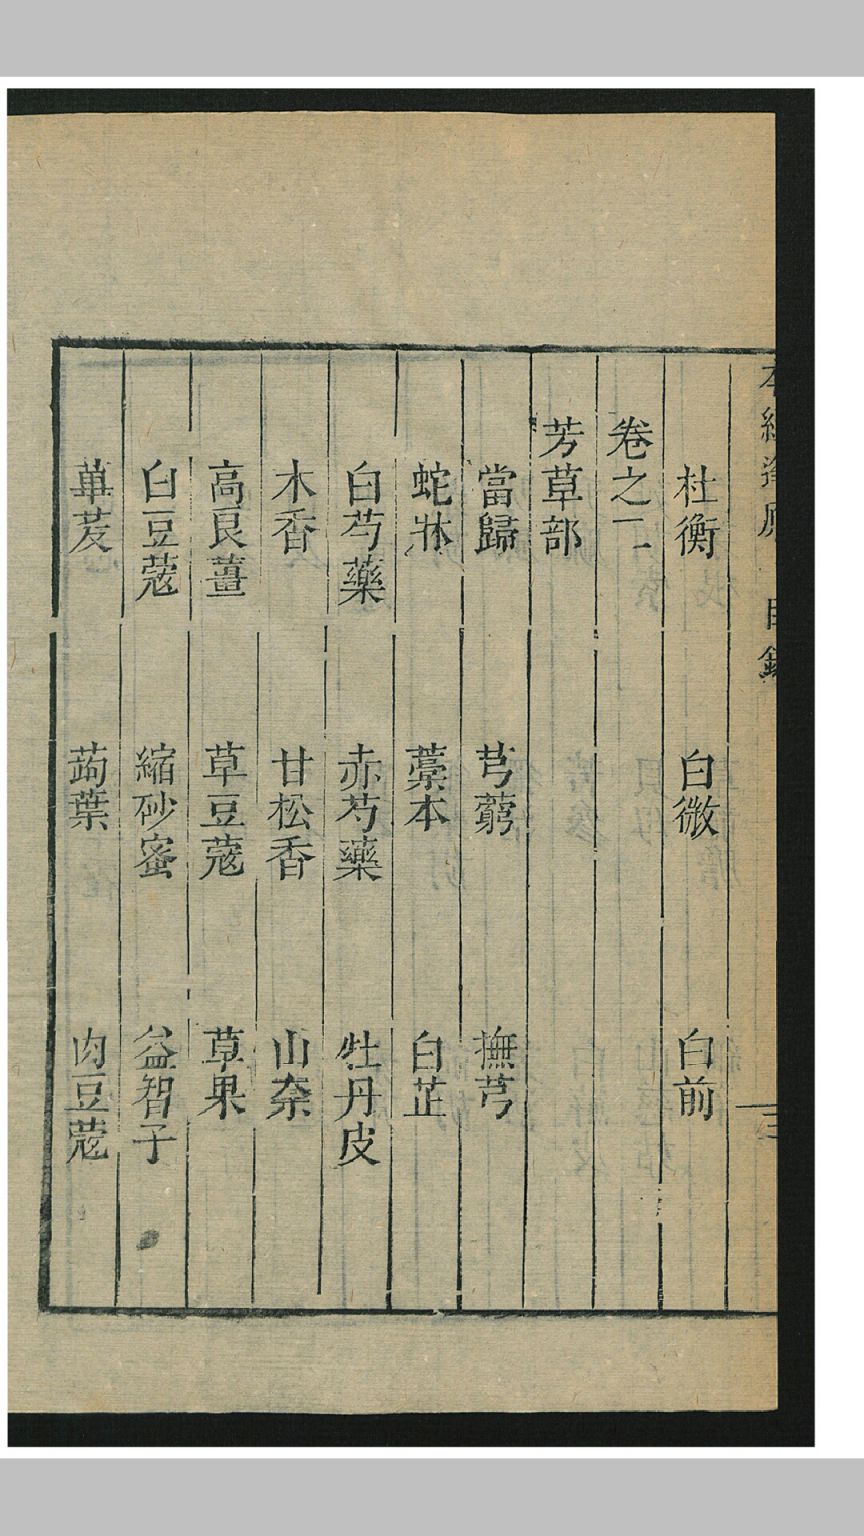 本經逢原 目錄 三
杜衡 白微 白前
卷之二
芳草部
當歸 芎藭 撫芎
蛇牀 藁本 白芷
白芍藥 赤芍藥 牡丹皮
木香 甘松香 山柰
高良薑 草豆蔻 草果
白豆蔻 縮砂蜜 益智子
蓽茇 蒟葉 肉豆蔻